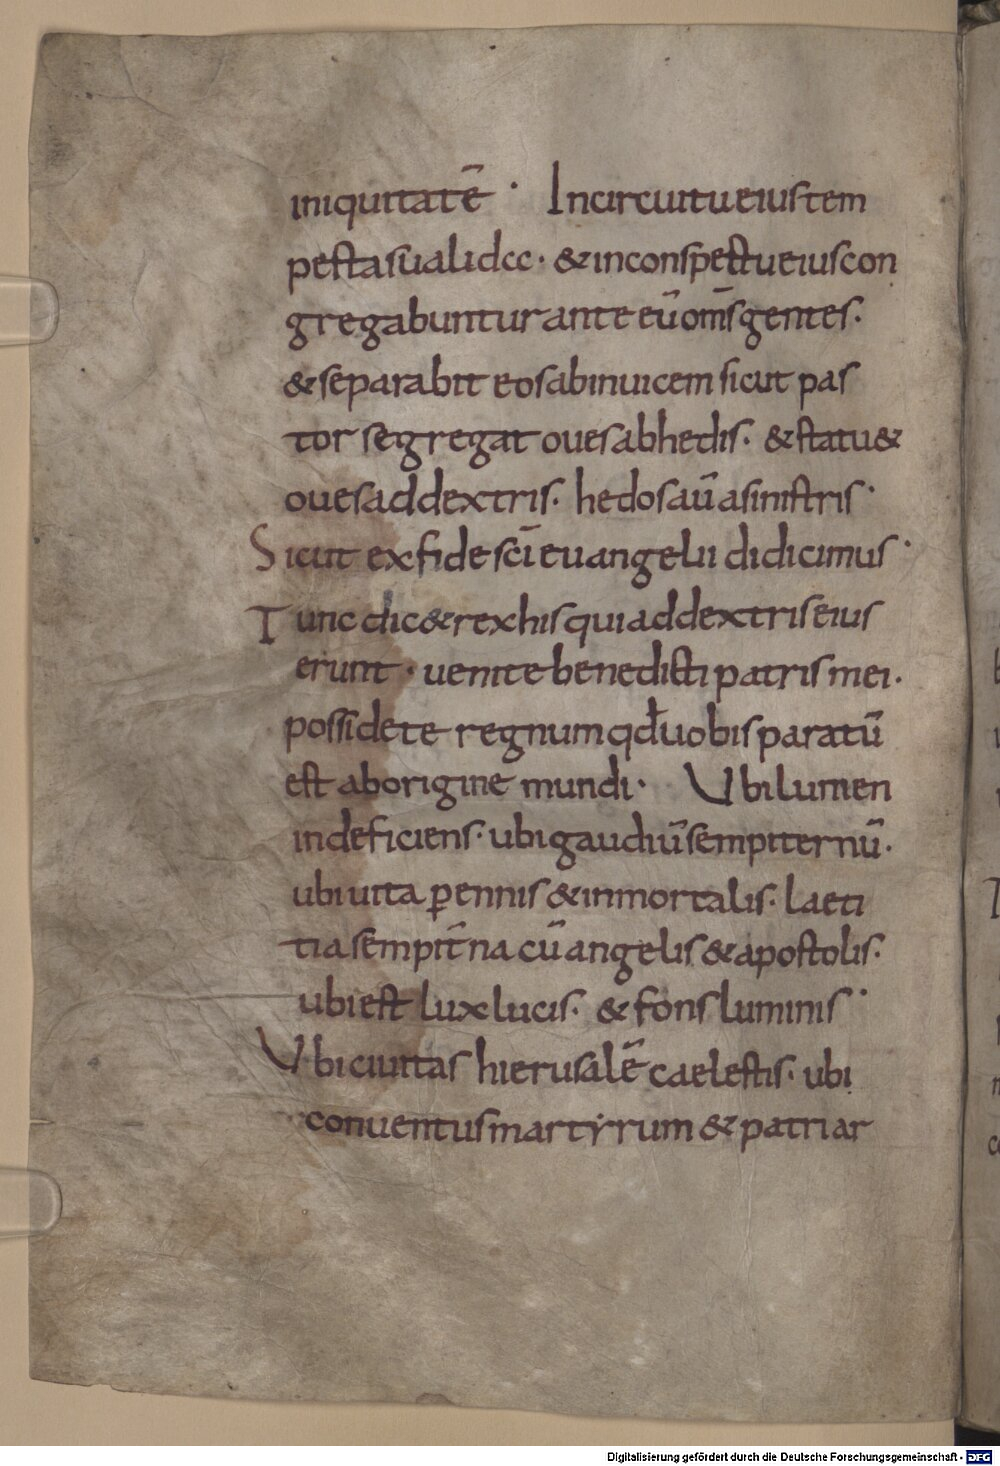 iniquitatē · Incircuitueiustem
pestasualidcc · &inconspectueiuscon
gregabunturante eūom̄sgentes.
&separabit eosabinuicem sicut pas
tor segregat ouesabhedis. &statu&
ouesaddextris. hedosaūasinistris ·
Sicut exfide scīeuangelii didicimus ·
Tunc dic&rexhisquiaddextriseius
erunt · uenitebenedicti patris mei.
possidete regnumqđuobisparatū
est aborigine mundi · Ubilumen
indeficiens · ubigaudiūsempiternū.
ubiuita ꝑennis &inmortalis. laeti
tiasempit̄na cūangelis&apostolis.
ubiest luxlucis. &fonsluminis ·
Ubiciuitas hierusalē caelestis. ubi
conuentusmartyrum &patriar
Digitalisierung gefördert durch die Deutsche Forschungsgemeinschaft - DFG